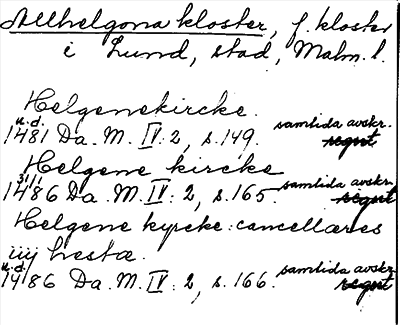 Allhelgona kloster, f. kloster
i Lund, stad, Malm. l.
Helgenekircke.
u.d. 1481 Da. M. IV: 2, s. 149. samtida avskr.
Helgene kircke
31/1 1486 Da. M. IV: 2, s. 165. samtida avskr.
Helgene kyrcke: cancellæres
iiij hestæ.
u.d. 1486 Da. M. IV: 2, s. 166. samtida avskr.